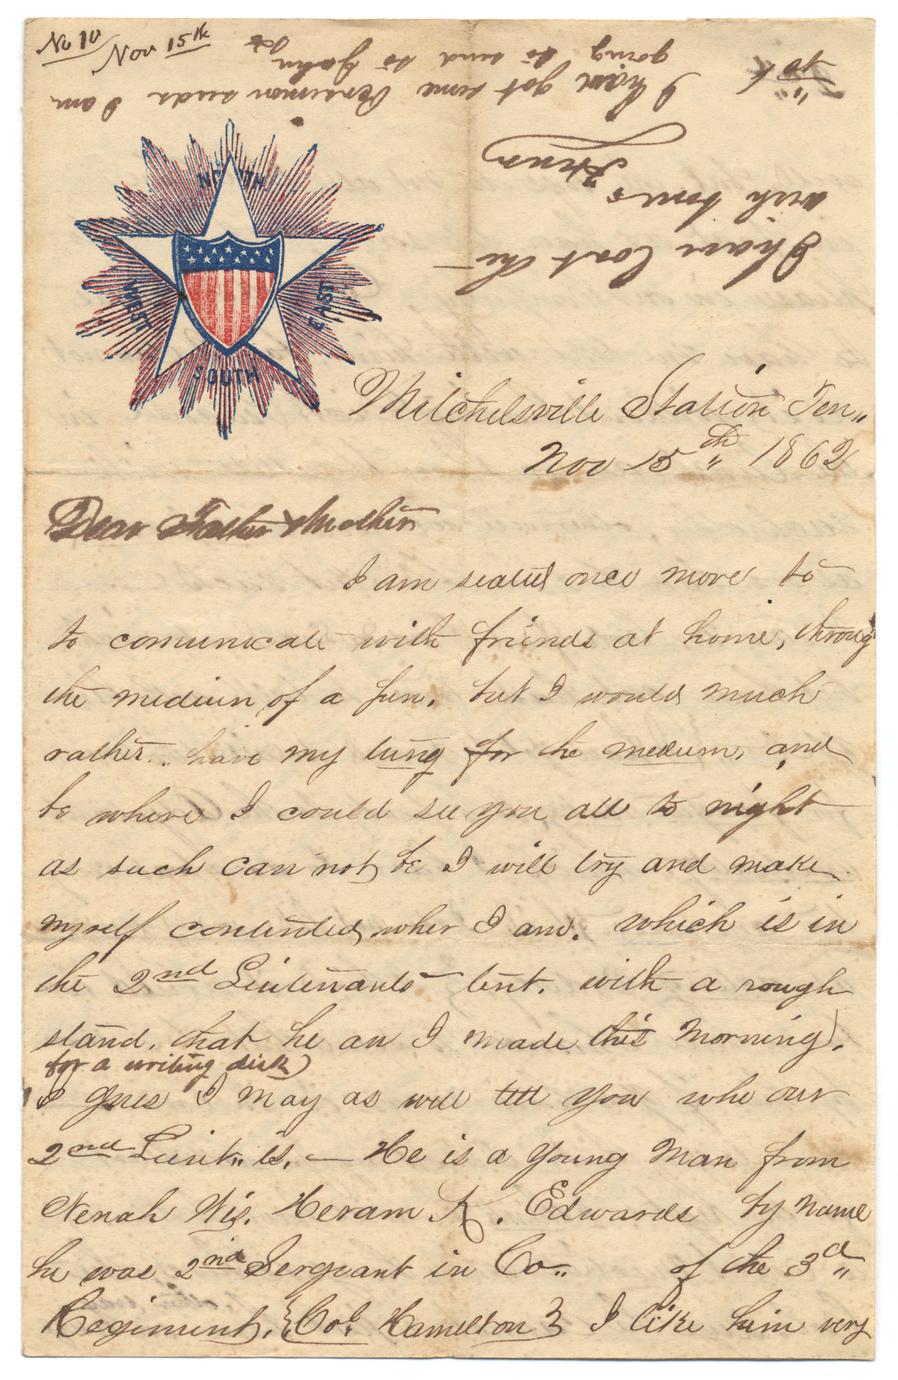 No 10 Nov 15th
I have got some Persimon seeds I am
going to send to John
I have lost the
with
NORTH
WEST
EAST
SOUTH
Mitchelsville Station Ten,,
Nov 15th 1862
Dear Father & Mother
I am seated once more to
to comunicate with friends at home, throug
the medium of a pen. but I would much
rather.. have my tung for the medium, and
be where I could see you all to night
as such can not be I will try and make
myself contented wher I am. which is in
the 2nd Lieutenants tent. with a rough
stand. that he an I made this Morning).
for a writing disk)
I gues I may as well tell you who our
2nd Lieut,, is. — He is a young Man from
Nenah Wis. Heram K. Edwards by name
he was 2nd Sergeant in Co.. of the 3d,,
Regiment. {Col. Hamelton} I like him very